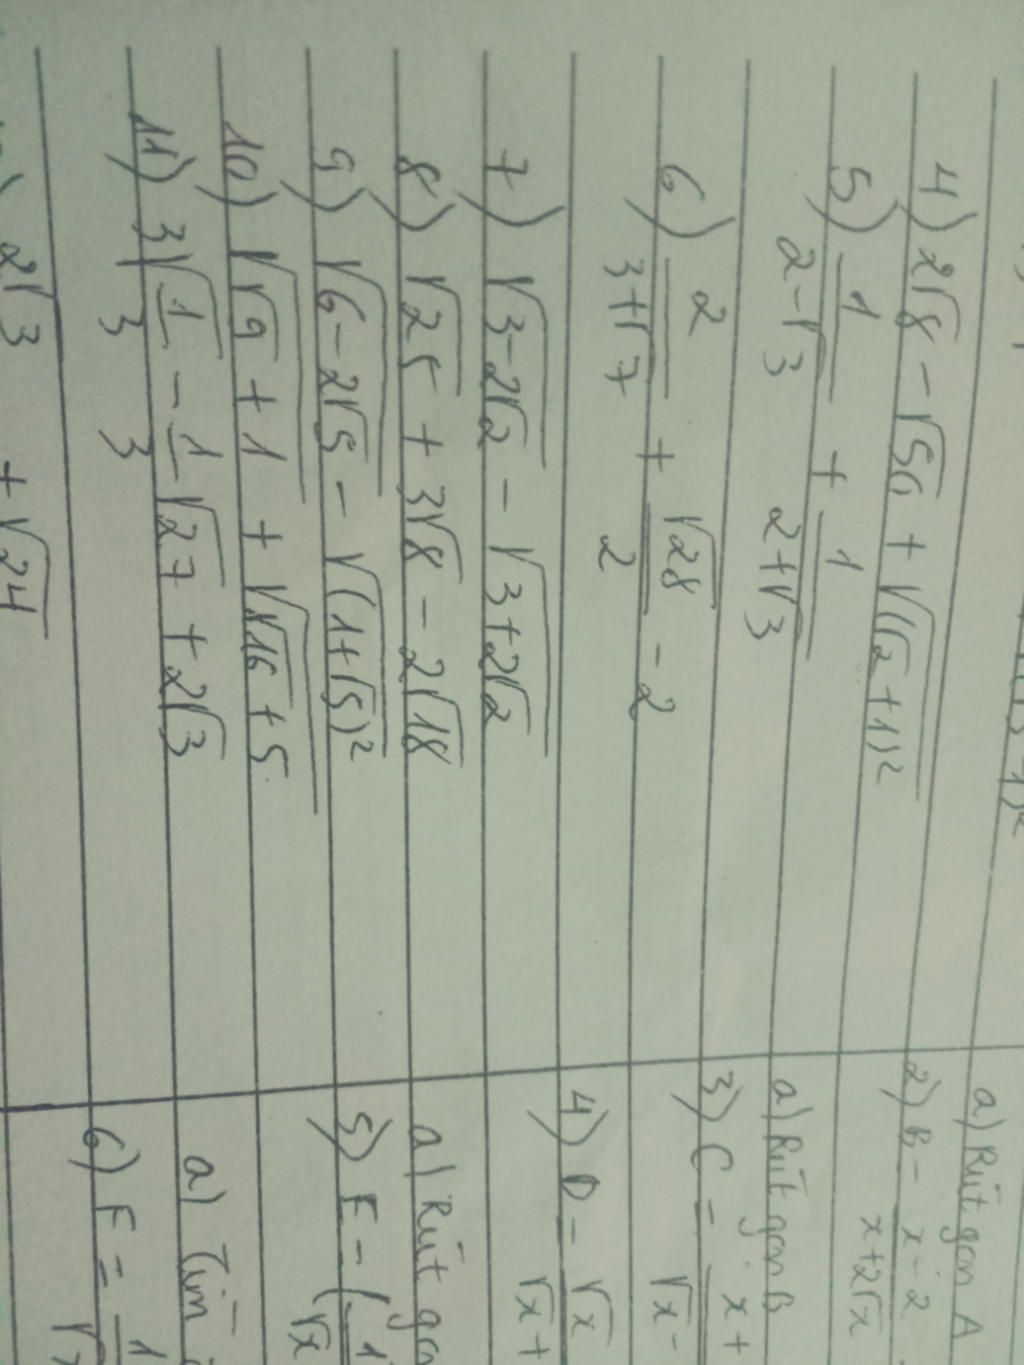 4) 2√8 - √50 + √(√2+1)²
5) 1/(2-√3) + 1/(2+√3)
6) 2/(3+√7) + √28/2 - 2
7) √(3-2√2) - √(3+2√2)
8) √25 + 3√8 - 2√18
9) √(6-2√5) - √(1+√5)²
10) √(√9+1) + √(√16+5)
11) 3√(1/3) - 1/3 √27 + 2√3
2√3 + √24
a) Rút gọn A
2) B = (x-2)/(x+2√x
a) Rút gọn B
3) C = x+/√x-
4) D = √x/√x+
a) Rút gọ
5) E = (1/√x
a) Tìm
6) F = 1/√x